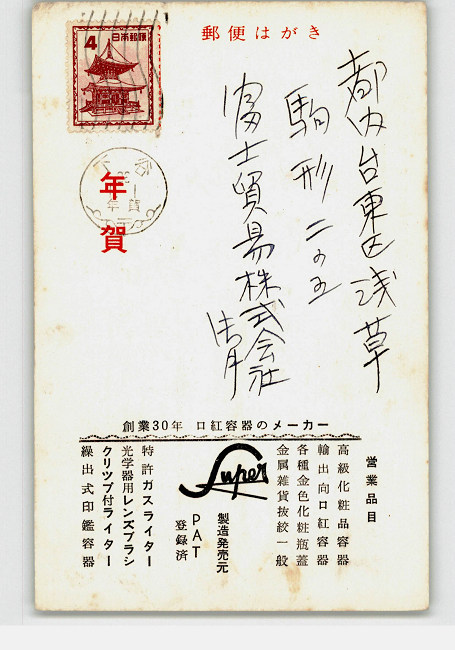 郵便はがき
4 日本郵便
年賀
都内台東区浅草
駒形二の五
富士貿易株式会社
創業30年 口紅容器のメーカー
営業品目
高級化粧品容器
輸出向口紅容器
各種金色化粧瓶蓋
金属雑貨抜絞一般
Super
製造発売元
PAT
登録済
特許ガスライター
光学器用レンズブラシ
クリップ付ライター
繰出式印鑑容器